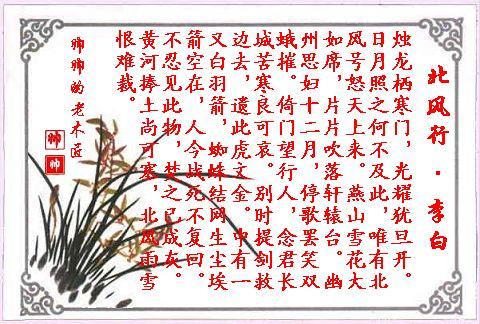 北风行·李白
烛龙栖寒门，光耀犹旦开。
日月照之何不及此，唯有北
风号怒天上来。燕山雪花大
如席，片片吹落轩辕台。幽
州思妇十二月，停歌罢笑双
蛾摧。倚门望行人，念君长
城苦寒良可哀。别时提剑救
边去，遗此虎文金。中有一
又白羽箭，蜘蛛结网生尘埃
箭空在，人今战死不复回。
不忍见此物，焚之已成灰。
黄河捧土尚可塞，北风雨雪
恨难裁。
帅帅的老木匠
帅
帅